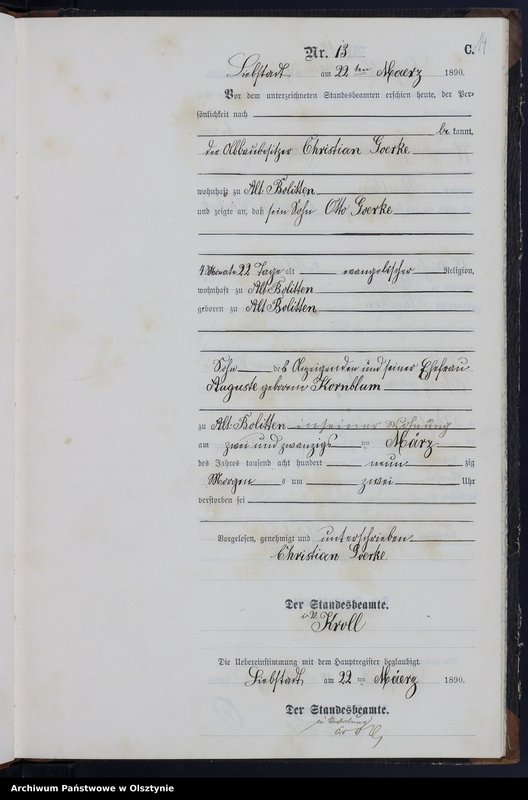 Nr. 13 C.
14
Liebstadt am 22 ten Maerz 1890.
Vor dem unterzeichneten Standesbeamten erschien heute, der Per=
sönlichkeit nach
be kannt,
der Abbaubesitzer Christian Goerke
wohnhaft zu Alt Bolitten
und zeigte an, daß sein Sohn Otto Goerke
4 Monate 22 Tage alt evangelischer Religion,
wohnhaft zu Alt Bolitten
geboren zu Alt Bolitten
Sohn des Anzeigenden und seiner Ehefrau
Auguste geborene Kornblum
zu Alt Bolitten in seiner Wohnung
am zwei und zwanzigs ten März
des Jahres tausend acht hundert neun zig
Morgen s um zwei Uhr
verstorben sei
Vorgelesen, genehmigt und unterschrieben
Christian Goerke
Der Standesbeamte.
i. V.
Kroll
Die Uebereinstimmung mit dem Hauptregister beglaubigt.
Liebstadt am 22 ten Maerz 1890.
Der Standesbeamte.
in Vertretung
Archiwum Państwowe w Olsztynie